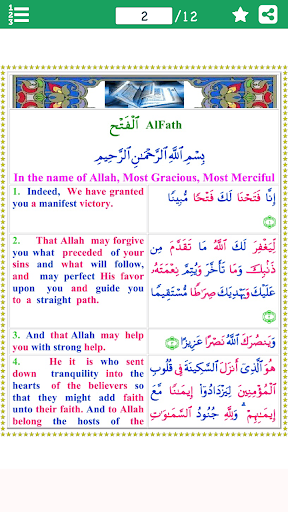 1
2
3
2 /12
الْفَتْح AlFath
بِسْمِ اللَّهِ الرَّحْمَٰنِ الرَّحِيمِ
In the name of Allah, Most Gracious, Most Merciful
1. Indeed, We have granted
you a manifest victory.
إِنَّا فَتَحْنَا لَكَ فَتْحًا مُّبِينًا
١
2. That Allah may forgive
you what preceded of your
sins and what will follow,
and may perfect His favor
upon you and guide you
to a straight path.
لِّيَغْفِرَ لَكَ اللَّهُ مَا تَقَدَّمَ مِن
ذَنۢبِكَ وَمَا تَأَخَّرَ وَيُتِمَّ نِعْمَتَهُۥ
عَلَيْكَ وَيَهْدِيَكَ صِرَٰطًا مُّسْتَقِيمًا
٢
3. And that Allah may help
you with strong help.
وَيَنصُرَكَ اللَّهُ نَصْرًا عَزِيزًا ٣
4. He it is who sent
down tranquility into the
hearts of the believers so
that they might add faith
unto their faith. And to Allah
belong the hosts of the
هُوَ الَّذِىٓ أَنزَلَ السَّكِينَةَ فِى قُلُوبِ
الْمُؤْمِنِينَ لِيَزْدَادُوٓا۟ إِيمَٰنًا مَّعَ
إِيمَٰنِهِمْ ۗ وَلِلَّهِ جُنُودُ السَّمَٰوَٰتِ